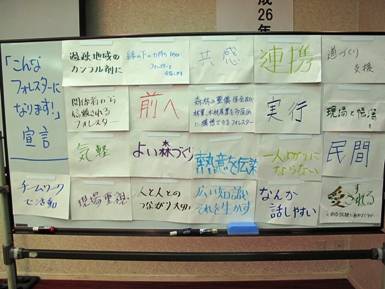 成
26
年
「こんな
フォレスターに
なります！」
宣言
過疎地域の
カンフル剤に
縁の下の力持ち
フォレスターを
共感
連携
道づくり
支援
関係者から
信頼される
フォレスター
前へ
森林の整備 保全及び
林業、木材産業を
に構想できるフォレスター
実行
現場と
気軽
よい森づくり
熱意を伝染
一人よがりに
ならない
民間
チームワーク
で活動
現場重視
人と人との
つながり大切に
広い知識と
それを生かす
なんか
話しやすい
愛される